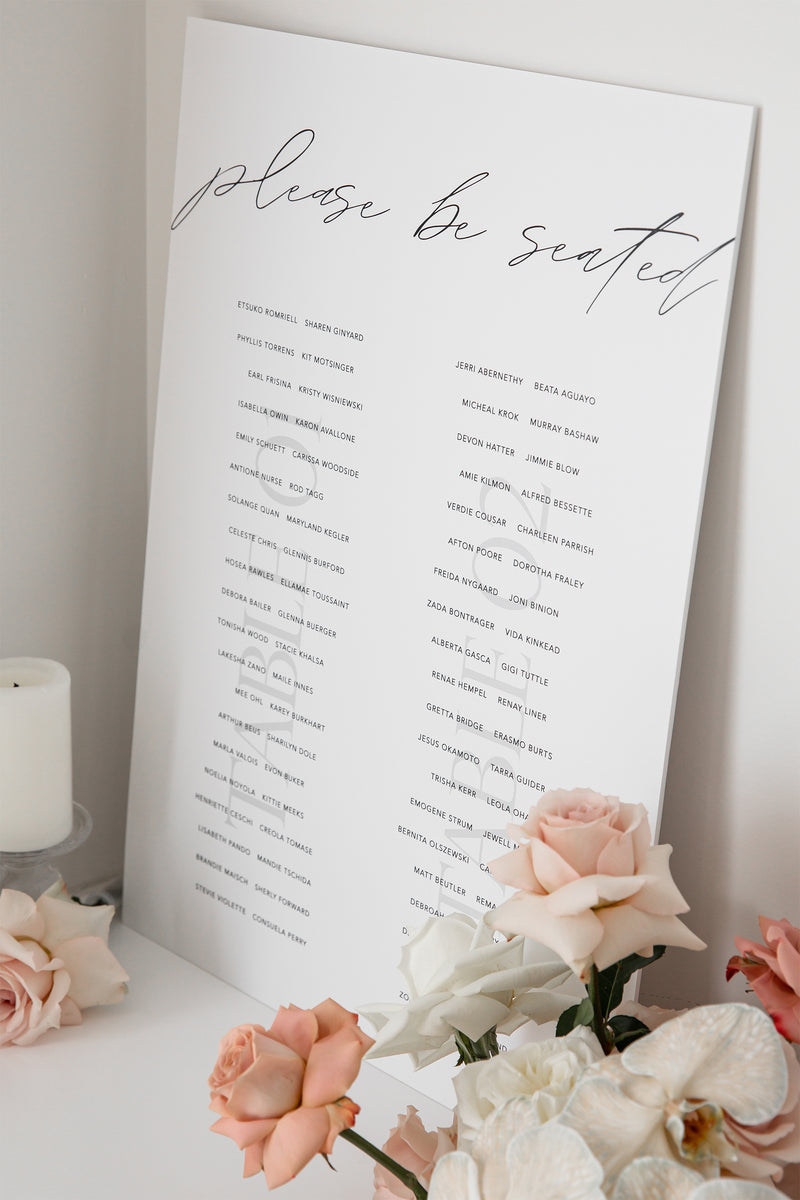 please be seated
TABLE 01
ETSUKO ROMRIELL SHAREN GINYARD
PHYLLIS TORRENS KIT MOTSINGER
EARL FRISINA KRISTY WISNIEWSKI
ISABELLA OWIN KARON AVALLONE
EMILY SCHUETT CARISSA WOODSIDE
ANTIONE NURSE ROD TAGG
SOLANGE QUAN MARYLAND KEGLER
CELESTE CHRIS GLENNIS BURFORD
HOSEA RAWLES ELLAMAE TOUSSAINT
DEBORA BAILER GLENNA BUERGER
TONISHA WOOD STACIE KHALSA
LAKESHA ZANO MAILE INNES
MEE OHL KAREY BURKHART
ARTHUR BEUS SHARILYN DOLE
MARLA VALOIS EVON BUKER
NOELIA NOYOLA KITTIE MEEKS
HENRIETTE CESCHI CREOLA TOMASE
LISABETH PANDO MANDIE TSCHIDA
BRANDIE MAISCH SHERLY FORWARD
STEVIE VIOLETTE CONSUELA PERRY
TABLE 02
JERRI ABERNETHY BEATA AGUAYO
MICHEAL KROK MURRAY BASHAW
DEVON HATTER JIMMIE BLOW
AMIE KILMON ALFRED BESSETTE
VERDIE COUSAR CHARLEEN PARRISH
AFTON POORE DOROTHA FRALEY
FREIDA NYGAARD JONI BINION
ZADA BONTRAGER VIDA KINKEAD
ALBERTA GASCA GIGI TUTTLE
RENAE HEMPEL RENAY LINER
GRETTA BRIDGE ERASMO BURTS
JESUS OKAMOTO TARRA GUIDER
TRISHA KERR LEOLA
EMOGENE STRUM JEWELL
BERNITA OLSZEWSKI
MATT BEUTLER
DEBROAH